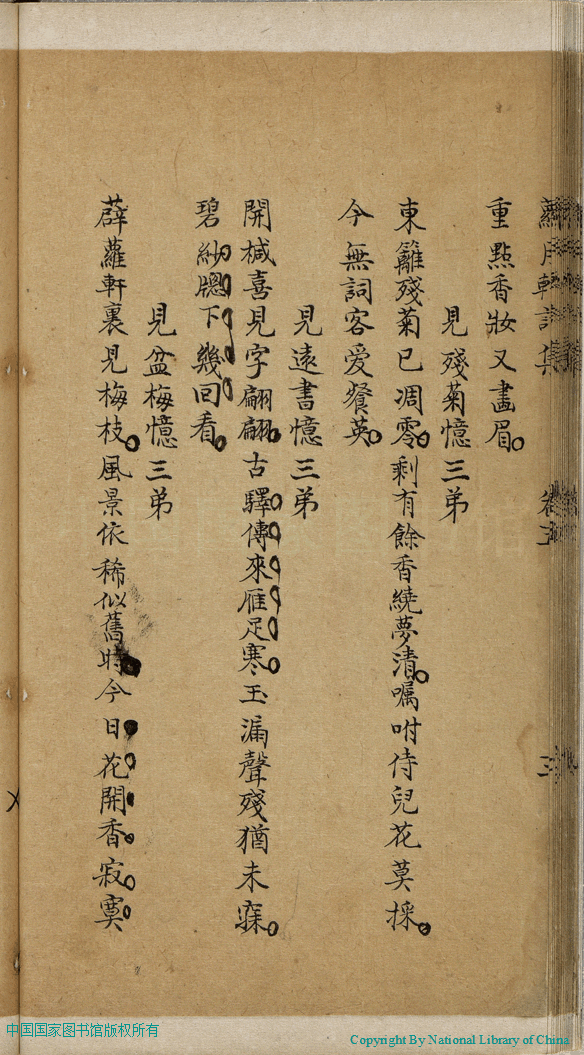 重點香妝又畫眉
見殘菊憶三弟
東籬殘菊已凋零剩有餘香繞夢清囑咐侍兒花莫採
今無詞客愛餐英
見遠書憶三弟
開椷喜見字翩翩古驛傳來雁足寒玉漏聲殘猶未寐
碧紗牕下幾回看
見盆梅憶三弟
薜蘿軒裏見梅枝風景依稀似舊時今日花開香寂寞
中国国家图书馆版权所有
Copyright By National Library of China